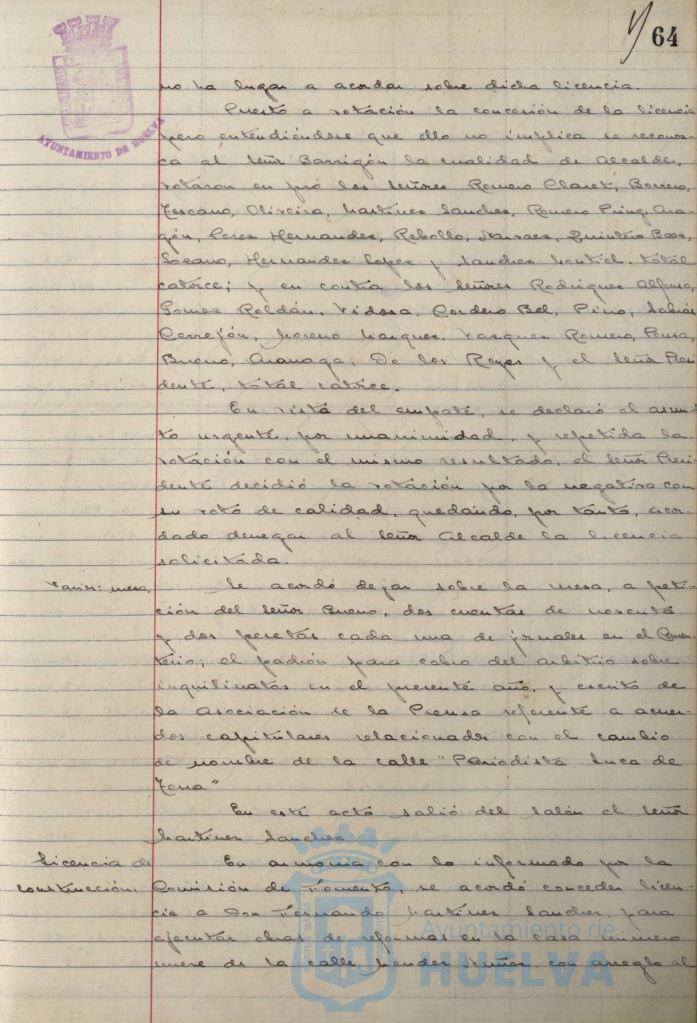 64
AYUNTAMIENTO DE HUELVA
no ha lugar a acordar sobre dicha licencia.
Puesto a votación la concesión de la licencia
pero entendiéndose que ello no implica se reconoz-
ca al Señor Barrigón la cualidad de Alcalde,
votaron en pró los Señores Romero Claret, Borrero,
Toscano, Oliveira, Martínez Sanchez, Romero Pring, Ara-
gón, Perez Hernandez, Rebollo, Narvaez, Quintero Baez,
Lozano, Hernandez Lopez y Sanchez Montiel. total
catorce; y en contra los Señores Rodriguez Alfonso,
Gomez Roldán, Vidosa, Cordero Bel, Pino,
Cerrejón, Moreno Marquez, Vazquez Romero, Ponsa,
Bueno, Aranaga, De los Reyes y el Señor Presi-
dente, total catorce.
En vista del empate, se declaró el asun-
to urgente, por unanimidad, y repetida la
votación con el mismo resultado, el Señor Presi-
dente decidió la votación por la negativa con
su voto de calidad, quedando, por tanto, acor-
dado denegar al Señor Alcalde la licencia
solicitada.
Varios: mesa.
Se acordó dejar sobre la mesa, a peti-
ción del Señor Bueno, dos cuentas de noventa
y dos pesetas cada una de jornales en el Cemen-
terio; el padrón para cobro del arbitrio sobre
inquilinatos en el presente año, y escrito de
la Asociación de la Prensa referente a acuer-
dos capitulares relacionados con el cambio
de nombre de la calle "Periodista Luca de
Tena"
En este acto salió del Salón el Señor
Martínez Sanchez
Licencia de
construcción.
En armonía con lo informado por la
Comisión de Fomento, se acordó conceder licen-
cia a Don Fernando Martínez Sanchez, para
ejecutar obras de reformas en la casa número
nueve de la calle Mendez Nuñez, con arreglo al
Ayuntamiento de
HUELVA